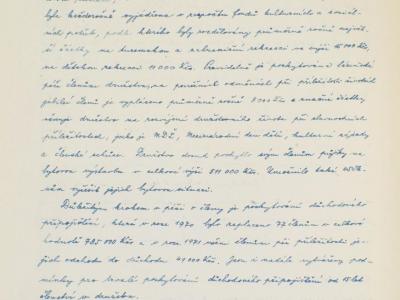 byla každoročně vyjádřena v rozpočtu fondů kulturních a sociál-
ních potřeb, podle kterého byly rozdělovány průměrně ročně nejvyš-
ší částky na tuzemskou a zahraniční rekreaci ve výši 15 000 Kčs,
na dětskou rekreaci 11 000 Kčs. Pravidelné je poskytování
péče členům družstva, na peněžních odměnách při příležitosti životních
jubileí členů je vypláceno průměrně ročně 8 000 Kčs a značné částky
věnuje družstvo na rozvíjení družstevního života při slavnostních
příležitostech, jako je MDŽ, Mezinárodní den dětí, kulturní zájezdy
a členské schůze. Družstvo dosud poskytlo svým členům půjčky na
bytovou výstavbu v celkové výši 511 000 Kčs. Umožnilo také
vyřešit jejich bytovou situaci.
Důležitým krokem v péči o členy je poskytování důchodového
připojištění, které v roce 1970 bylo zaplaceno 77 členům v celkové
hodnotě 785 000 Kčs a v roce 1971 členům při příležitosti je-
jich odchodu do důchodu 49 000 Kčs. Jsou i nadále vytvářeny pod-
mínky pro trvalé poskytování důchodového připojištění od 15 let
členství v družstvu.